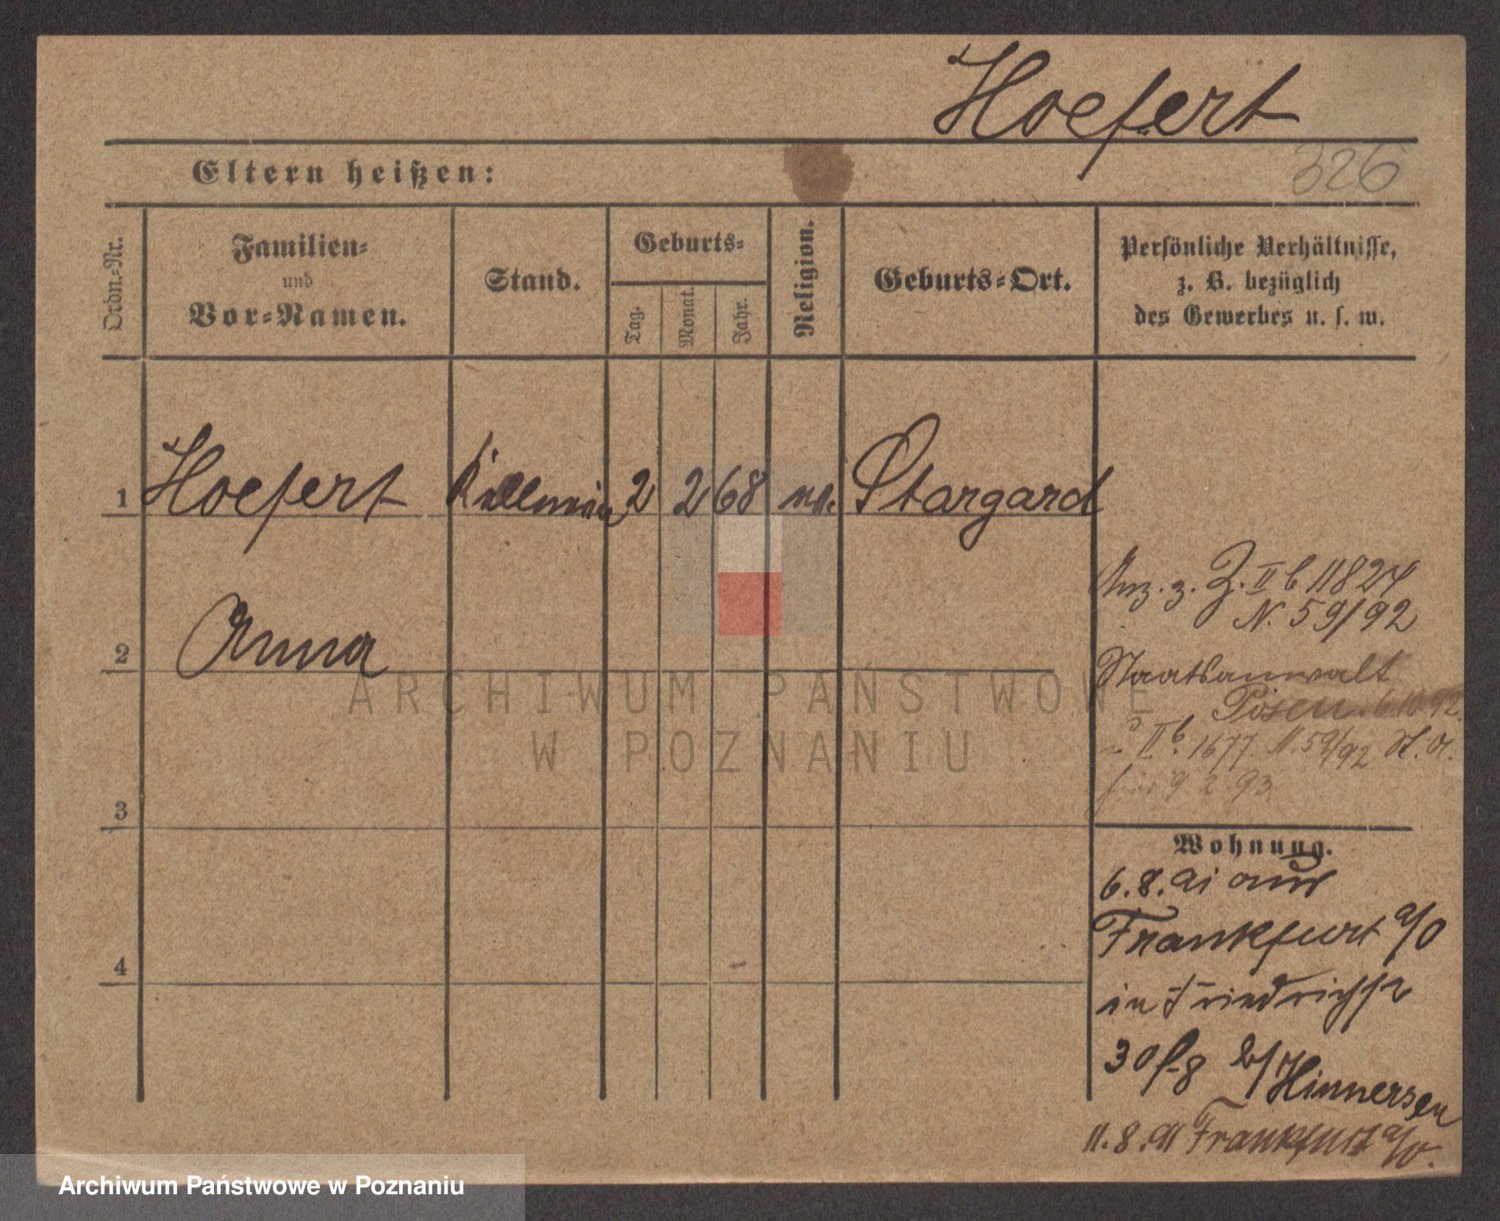 Hoefert
326
Eltern heißen:
Ordn.-Nr.
Familien-
und
Vor-Namen.
Stand.
Geburts-
Tag.
Monat.
Jahr.
Religion.
Geburts-Ort.
Persönliche Verhältnisse,
z. B. bezüglich
des Gewerbes u. s. w.
1 Hoefert Kellnerin 2 2 68 ev. Stargard
2 Anna
3
4
Anz. z. Z. II b 11824
N. 59/92
Staatsanwalt
Posen 6.10.92.
II b. 1677 N. 59/92 St. A.
9. 2. 93
Wohnung.
6. 8. 91 aus
Frankfurt a/O
in Friedrichstr
30 b/ Hinnersen
11. 8. 91 Frankfurt a/O.
ARCHIWUM PAŃSTWOWE
W POZNANIU
Archiwum Państwowe w Poznaniu